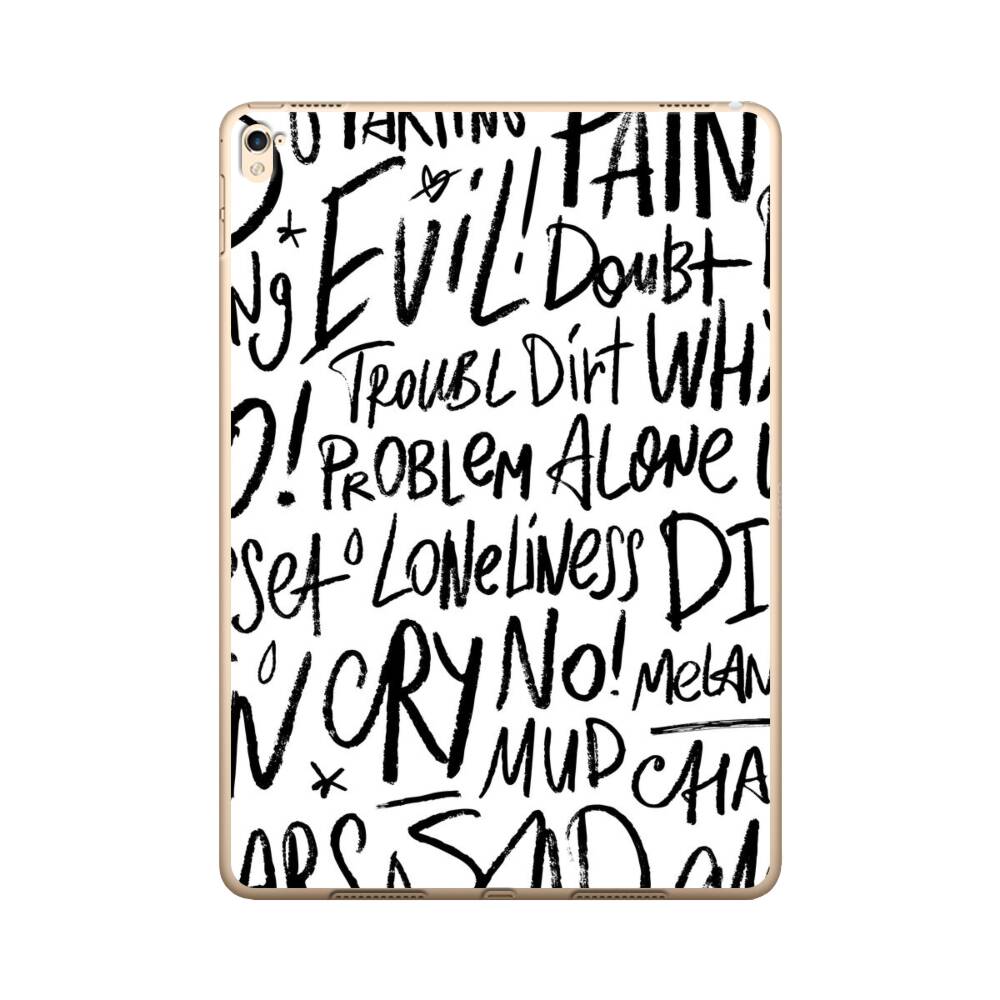 PAIN
EViL! DouBt
TROUBL Dirt WHY
PROBLEM ALONE
LONELiNESS DI
CRY NO! MELAN
MUD CHA
SAD